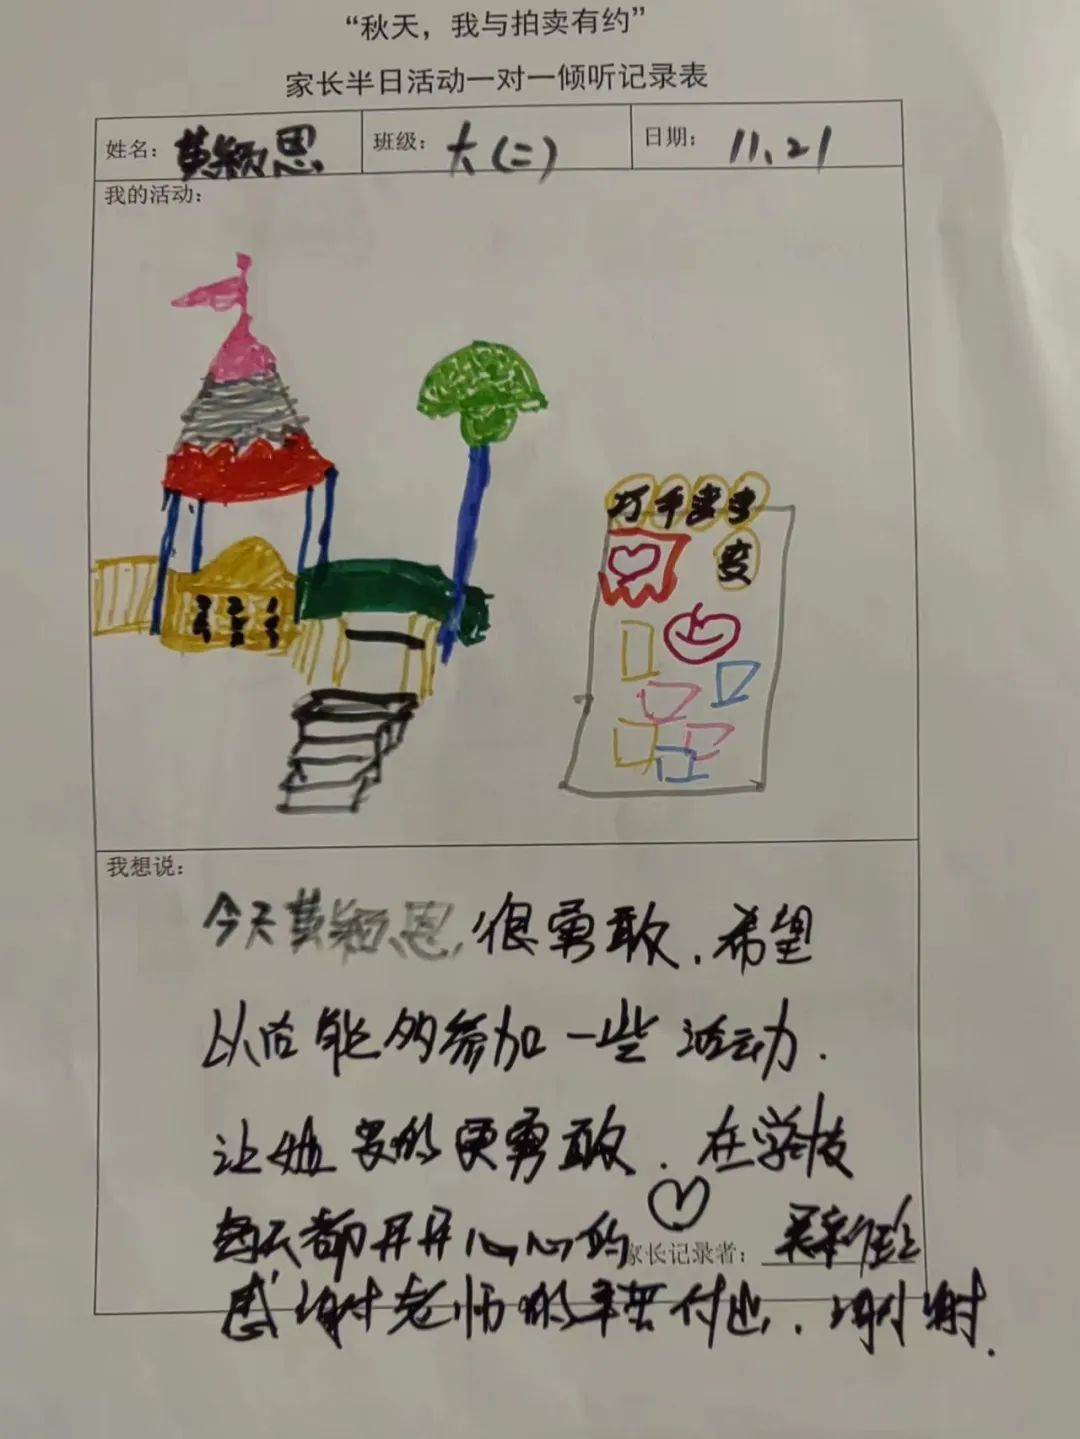 “秋天，我与拍卖有约”
家长半日活动一对一倾听记录表
姓名：黄颖思 班级：大（二） 日期：11.21
我的活动：
巧手变变
变
我想说：
今天黄颖思，很勇敢．希望
以后能够参加一些活动．
让她变的更勇敢．在学校
每天都开开心心的
家长记录者：
感谢老师的辛苦付出．谢谢．